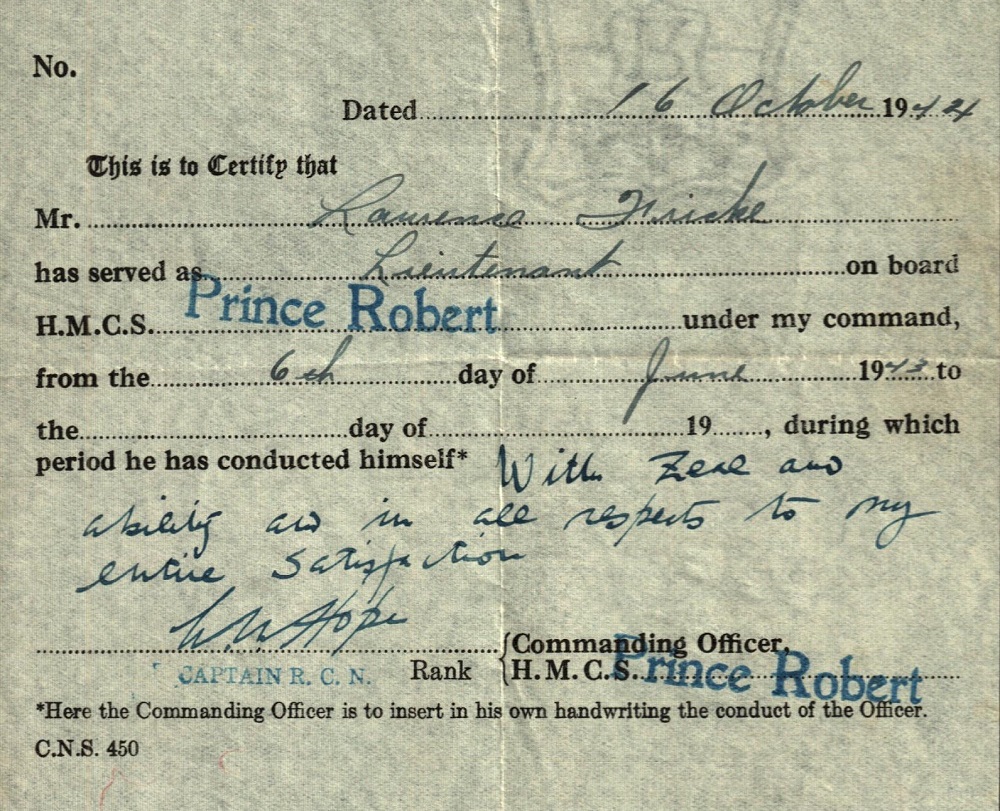 No.
Dated 16 October 1944
This is to Certify that
Mr. Laurence
has served as Lieutenant on board
H.M.C.S. Prince Robert under my command,
from the 6th day of June 1943 to
the day of 19 , during which
period he has conducted himself* With Zeal and
ability and in all respects to my
entire satisfaction
Hope
Commanding Officer,
CAPTAIN R. C. N. Rank H.M.C.S. Prince Robert
*Here the Commanding Officer is to insert in his own handwriting the conduct of the Officer.
C.N.S. 450